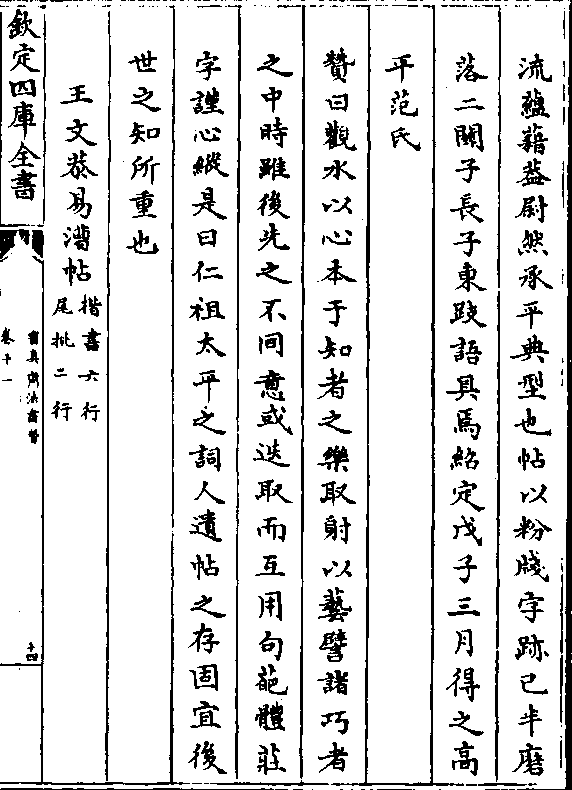 流蘊藉葢尉然承平典型也帖以粉牋字跡已半磨
落二關子長子東跋語具焉紹定戊子三月得之高
平范氏
贊曰觀水以心本于知者之樂取射以藝譬諸巧者
之中時雖後先之不同意或迭取而互用句葩體莊
字謹心縱是曰仁祖太平之詞人遺帖之存固宜後
世之知所重也
王文恭易漕帖楷書六行尾批二行
欽定四庫全書
寳真齋法書贊
卷十一
十四